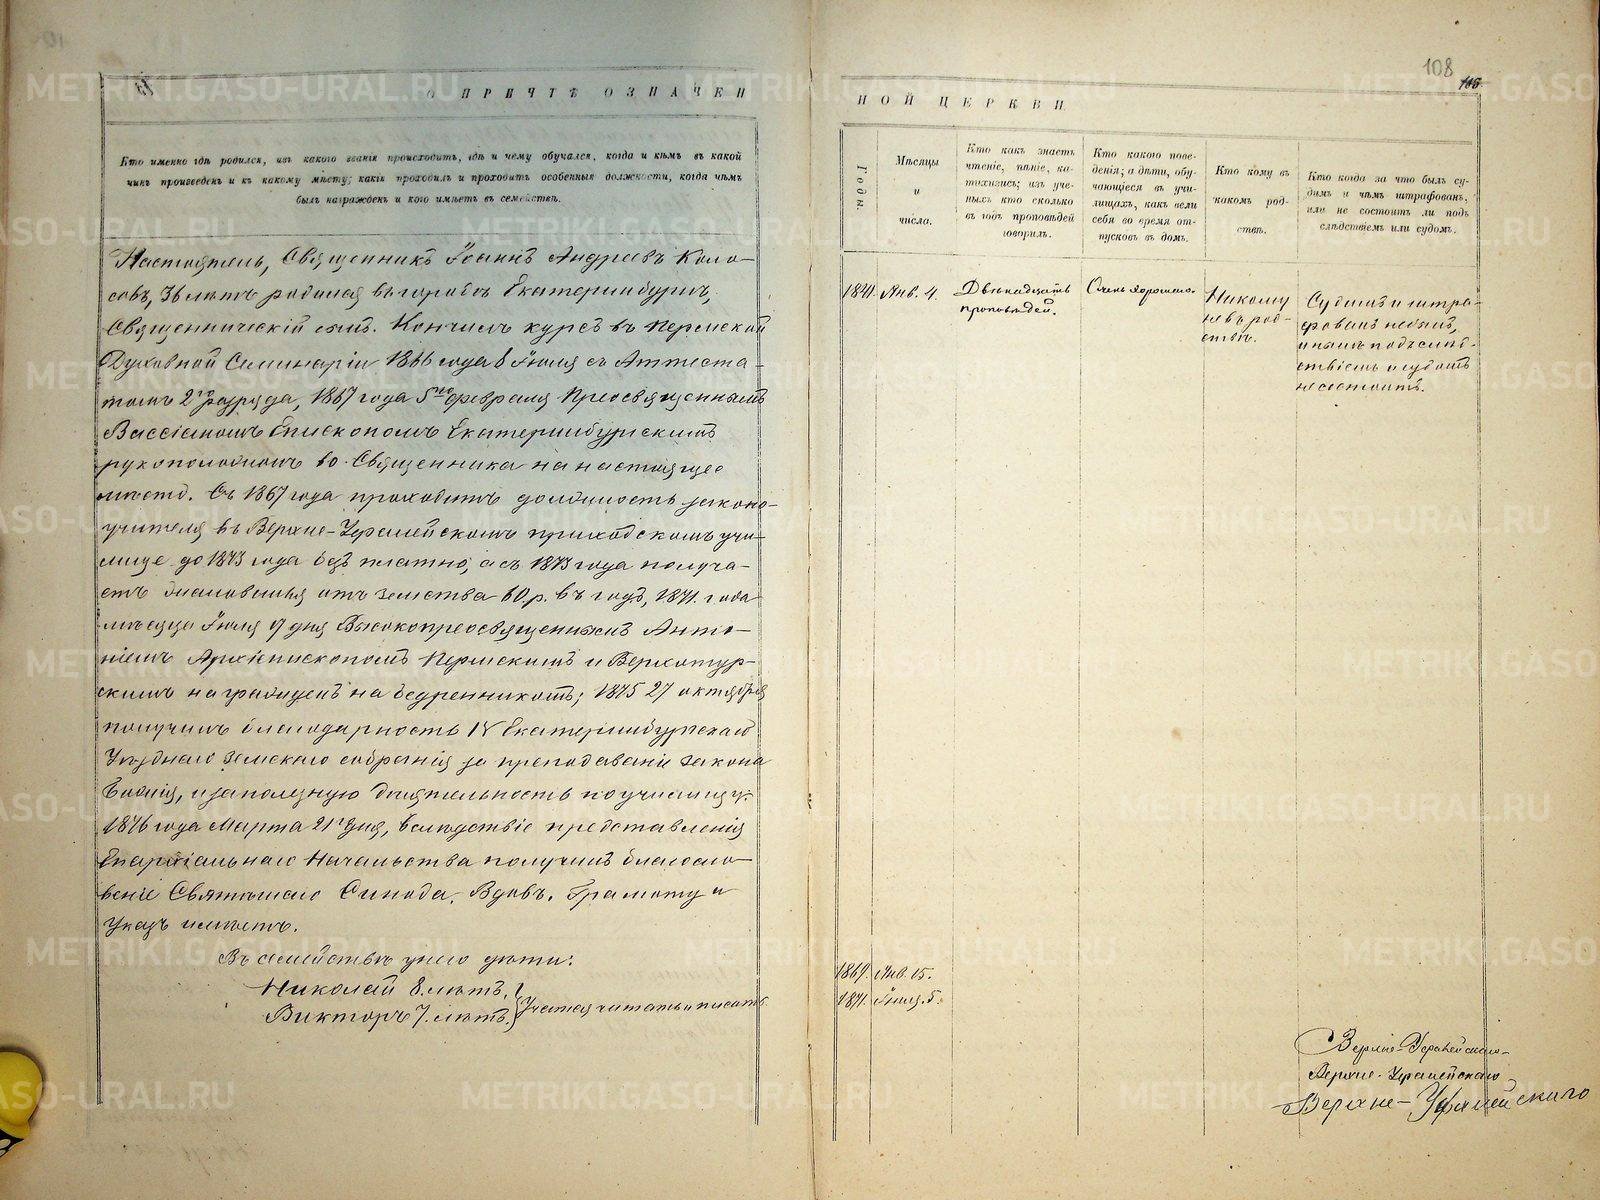 О ПРИЧТѢ ОЗНАЧЕН
Кто именно гдѣ родился, изъ какого званія происходитъ, гдѣ и чему обучался, когда и кѣмъ въ какой
чинъ произведенъ и къ какому мѣсту; какія проходилъ и проходитъ особенныя должности, когда чѣмъ
былъ награжденъ и кого имѣетъ въ семействѣ.
Настоятель, Священникъ Іоаннъ Андреевъ Коло-
совъ, 36 лѣтъ родился въ городѣ Екатеринбургѣ,
Священническій сынъ. Кончилъ курсъ въ Пермской
Духовной Семинаріи 1866 года 8 Іюля съ Аттеста-
томъ 2го разряда, 1867 года 5го февраля Преосвященнымъ
Вассіаномъ Епископомъ Екатеринбургскимъ
рукоположенъ во Священника на настоящее
мѣсто. Съ 1867 года проходитъ должность законо-
учителя въ Верхне-Уфалейскомъ приходскомъ учи-
лище до 1873 года безплатно, а съ 1873 года получа-
етъ жалованья отъ земства 60 р. въ годъ, 1871 года
мѣсяца Іюля 9 дня Высокопреосвященнымъ Анто-
ніемъ Архіепископомъ Пермскимъ и Верхотур-
скимъ награжденъ набедренникомъ; 1875 27 октября
получилъ благодарность IV Екатеринбургскаго
Уѣзднаго Земскаго собранія за преподаваніе Закона
Божія, и за полезную дѣятельность по училищу.
1876 года Марта 21го дня, вслѣдствіе представленія
Епархіальнаго Начальства получилъ благосло-
веніе Святѣйшаго Синода. Вдовъ. Грамоту и
Указъ имѣетъ.
Въ семействѣ у него дѣти:
Николай 8. лѣтъ,
Викторъ 7. лѣтъ. } Учатся читать и писать
108
НОЙ ЦЕРКВИ
Годы.
Мѣсяцы
и
числа.
Кто какъ знаетъ
чтеніе, пѣніе, ка-
тихизисъ; изъ уче-
ныхъ кто сколько
въ годъ проповѣдей
говорилъ.
Кто какого пове-
денія; а дѣти, обу-
чающіеся въ учи-
лищахъ, какъ вели
себя во время от-
пусковъ въ домъ.
Кто кому въ
какомъ род-
ствѣ.
Кто когда за что былъ су-
димъ и чѣмъ штрафованъ,
или не состоитъ ли подъ
слѣдствіемъ или судомъ.
Янв. 4.
Двѣнадцать
проповѣдей.
Очень хорошаго.
Никому
не въ род-
ствѣ.
Судимъ и штра-
фованъ не былъ,
и нынѣ подъ слѣд-
ствіемъ и судомъ
не состоитъ.
1869. Янв. 15.
1871. Іюля. 5.
Верхне-Уфалейскаго
Верхне-Уфалейскаго
Верхне-Уфалейскаго
METRIKI.GASO-URAL.RU